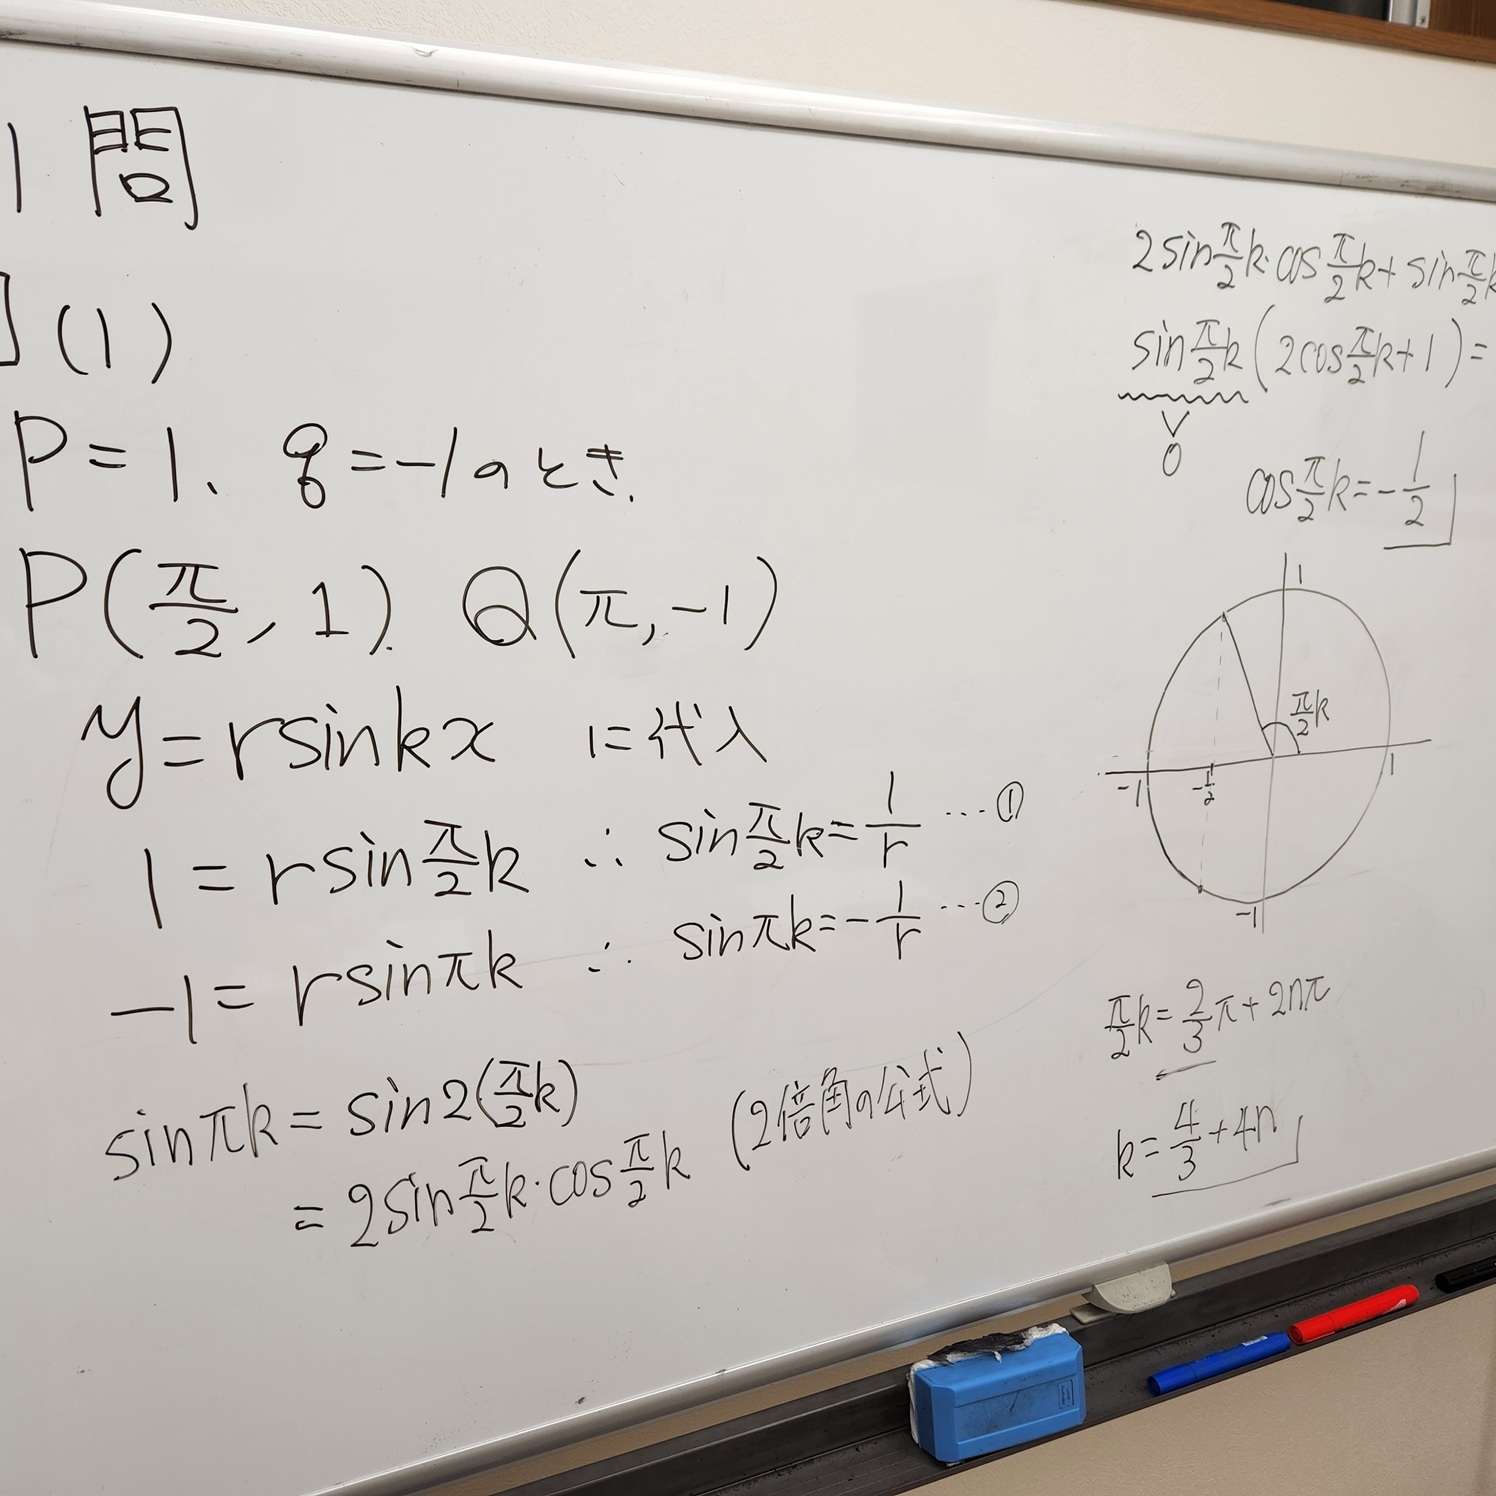 1 問
] (1)
P = 1、 q = -1 のとき.
P(π/2, 1). Q(π, -1)
y = r sin kx に代入
1 = r sin π/2 k ∴ sin π/2 k = 1/r …①
-1 = r sin πk ∴ sin πk = -1/r …②
sin πk = sin 2(π/2 k)
= 2 sin π/2 k · cos π/2 k (2倍角の公式)
2 sin π/2 k · cos π/2 k + sin π/2 k
sin π/2 k (2 cos π/2 k + 1) =
∨
0
cos π/2 k = - 1/2
1
π/2 k
-1 -1/2 1
-1
π/2 k = 2/3 π + 2nπ
k = 4/3 + 4n